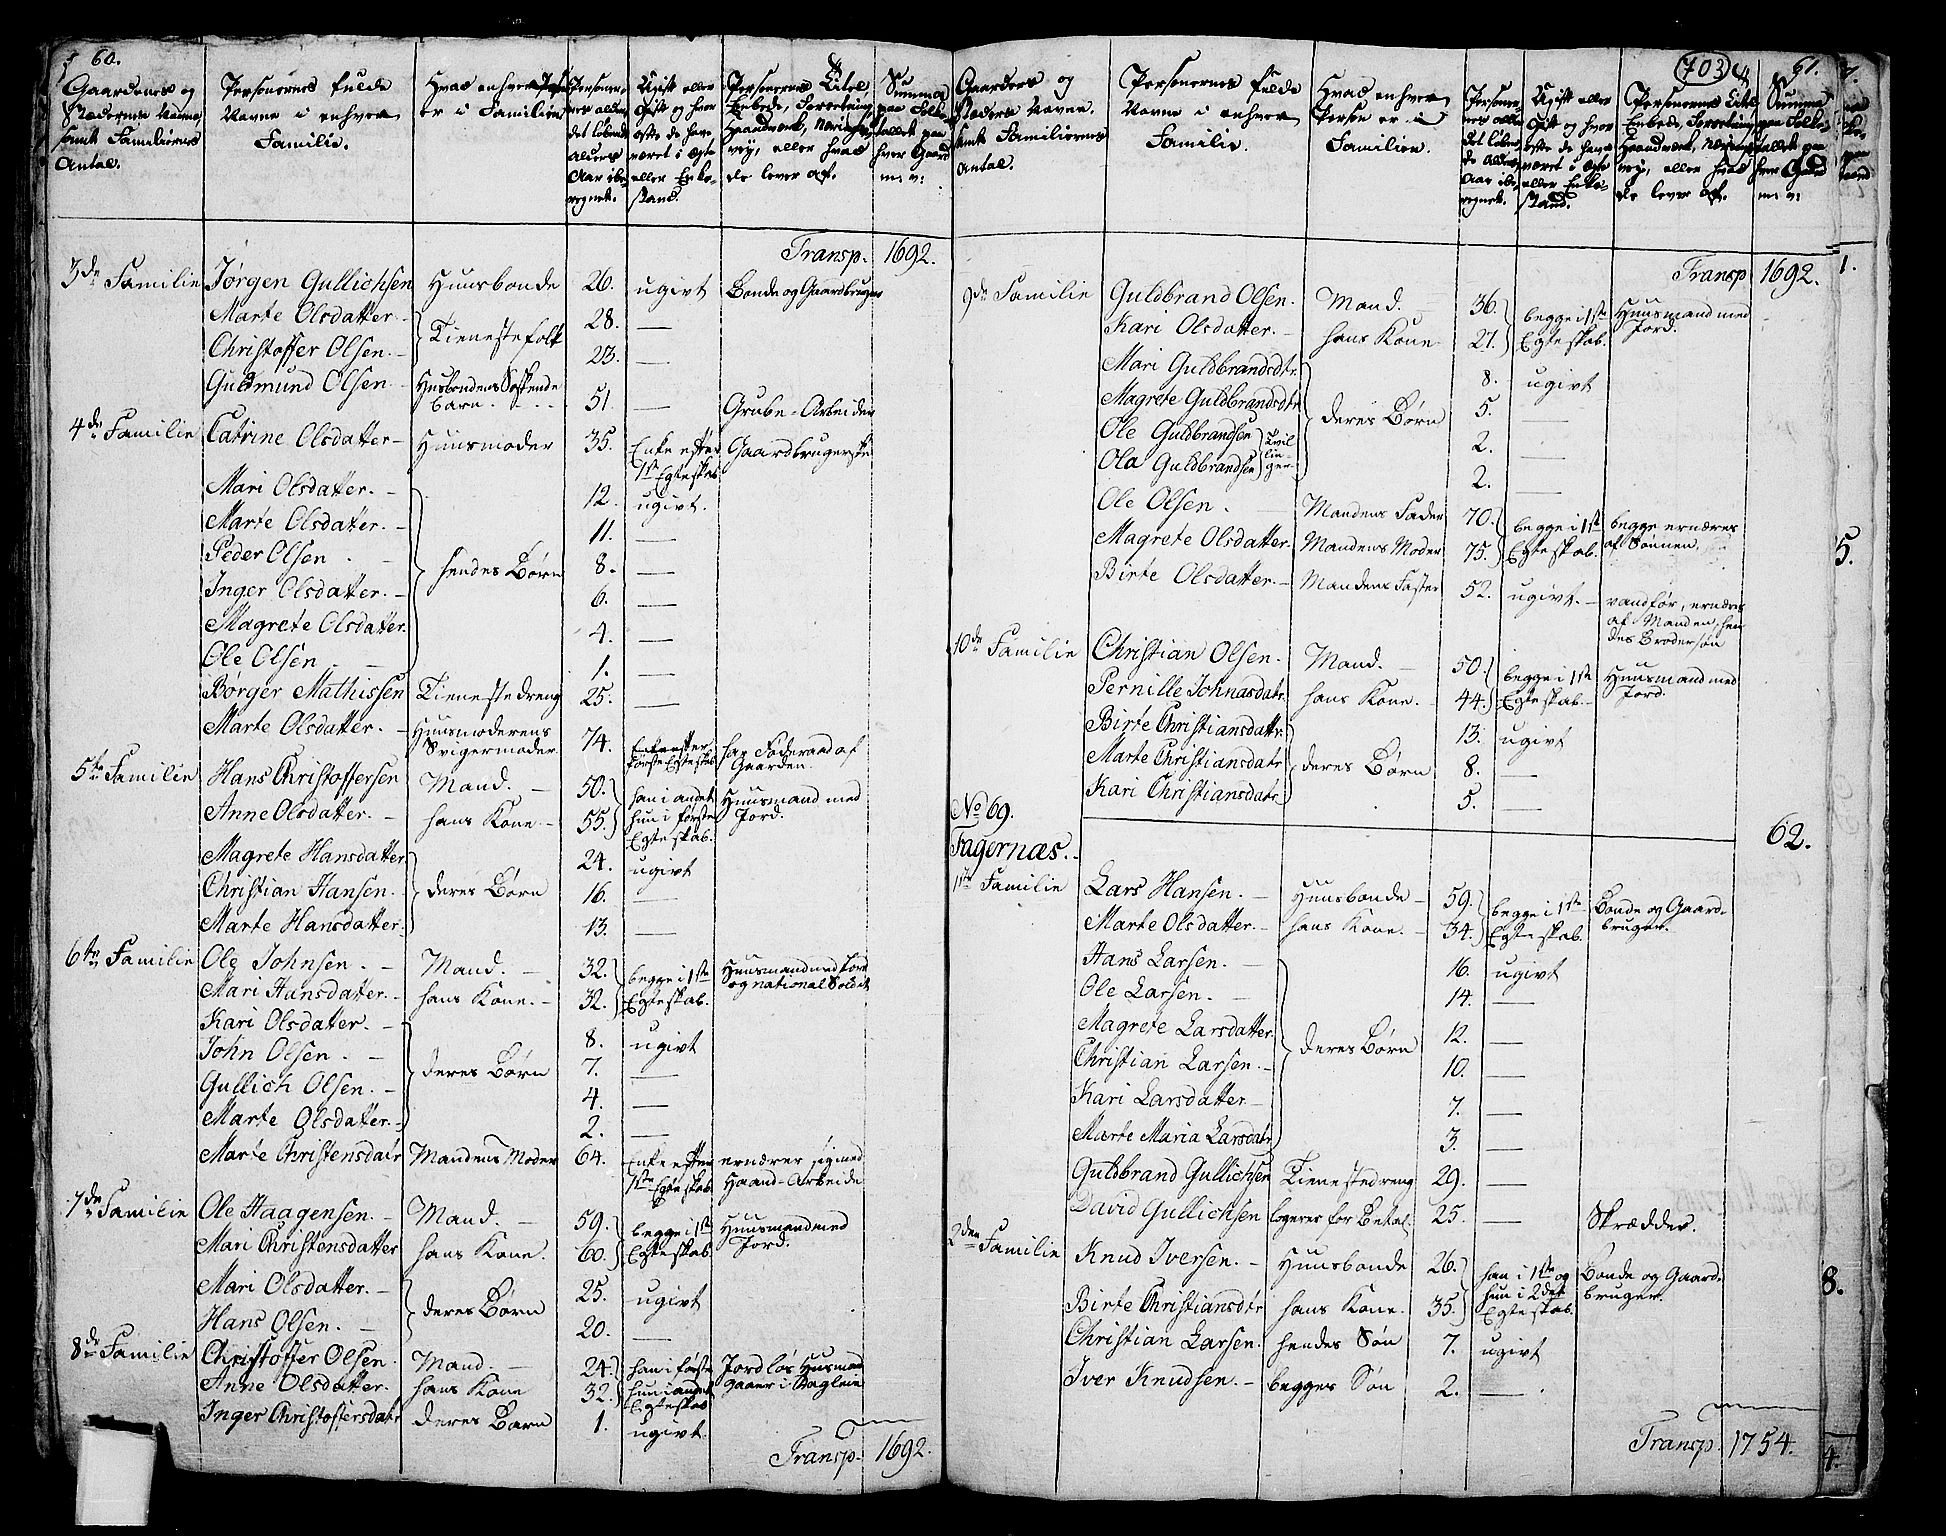 60.
Gaardenes og Stædernes Navne samt Familiernes Antal.
Personernes fulde Navne i enhver Familie.
Hvad enhver Person er i Familien
Personernes alder det løbende Alders Aar iberegnet.
Ugift eller Gift og hvor ofte de have været i Ægte eller Enkestand.
Personernes Titel, Embede, Forretning, Haandværk, Næringsvey, eller hvad de lever af.
Summa paa Folketallet paa hver Gaard m: v:
Transp. 1692.
3de Familie Jørgen Gullichsen Huusbonde 26. ugivt Bonde og Gaardbruger
Marte Olsdatter. 28. —
Tienestefolk
Christoffer Olsen. 23. —
Guldmund Olsen Husbondens Søskendebarn. 51. — Grube-Arbeider
4de Familie Catrine Olsdatter Huusmoder 35. Enke efter 1ste Egteskab Gaardbrugerske
Mari Olsdatter. 12. ugivt.
Marte Olsdatter. 11. —
Peder Olsen 8. —
hendes Børn
Inger Olsdatter. 6. —
Magrete Olsdatter. 4. —
Ole Olsen 1. —
Børger Mathissen Tienestedreng 25. —
Marte Olsdatter. Huusmoderens Svigermoder. 74. Enke efter første Egteskab har Føderaad af Gaarden.
5te Familie Hans Christoffersen Mand. 50. han i andet Huusmand med Jord.
Anne Olsdatter. hans Kone 55. hun i første Egteskab.
Magrete Hansdatter 24. ugivt
Christian Hansen. deres Børn 16. —
Marte Hansdatter. 13. —
6te Familie Ole Johnsen. Mand. 32. begge i 1ste Egteskab. Huusmand med Jord og national Soldat
Mari Hansdatter. hans Kone. 32.
Kari Olsdatter. 8. ugivt
John Olsen. 7. —
deres Børn
Gullich Olsen. 4. —
Marte Olsdatter. 2. —
Marte Christensdatr Mandens Moder 64. Enke efter 1ste Egteskab ernærer sig med Haand-Arbeide
7de Familie Ole Haagensen. Mand. 59. begge i 1ste Egteskab Huusmand med Jord.
Mari Christensdatter hans Kone. 60.
Mari Olsdatter. 25. ugivt
deres Børn
Hans Olsen. 20. —
8de Familie Christoffer Olsen. Mand. 24. han i første Jordløs Husmand gaaer i Dagleie
Anne Olsdatter. hans Kone 32. hun i andet Egteskab
Inger Christoffersdatr deres Barn 1. ugivt.
Transp. 1692.
703
61.
Gaardenes og Stædernes Navne samt Familiernes Antal.
Personernes fulde Navne i enhver Familie.
Hvad enhver Person er i Familien.
Personernes alder det løbende Alders Aar iberegnet.
Ugift eller Gift og hvor ofte de have været i Ægte eller Enkestand.
Personernes Titel, Embede, Forretning, Haandværk, Næringsvey, eller hvad de lever af.
Summa paa Folketallet paa hver Gaard m: v:
Transp 1692.
9de Familie Guldbrand Olsen. Mand. 36. begge i 1ste Egteskab. Huusmand med Jord.
Kari Olsdatter. hans Kone 21.
Mari Guldbrandsdtr. 8. ugivt
Magrete Guldbrandsdtr 5. —
deres Børn
Ole Guldbrandsen Tvillinger 2. —
Ola Guldbrandsen 2. —
Ole Olsen. Mandens Fader 70. begge i 1ste Egteskab. begge ernæres af Sønnen.
Magrete Olsdatter. Mandens Moder 75.
Birte Olsdatter. Mandens Faster 52. ugivt. vandfør, ernæres af Manden, hendes Brodersøn
10de Familie Christian Olsen. Mand. 50. begge i 1ste Egteskab. Huusmand med Jord.
Pernille Johnsdatr. hans Kone. 44.
Birte Christiansdattr. 13. ugivt
Marte Christiansdatr deres Børn 8. —
Kari Christiansdatr 5. —
62.
No 69.
Fagernæs.
1ste Familie Lars Hansen. Huusbonde 59. begge i 1ste Egteskab. Bonde og Gaardbruger.
Marte Olsdatter. hans Kone. 34.
Hans Larsen. 16. ugivt
Ole Larsen. 14. —
Magrete Larsdatter. 12. —
deres Børn
Christian Larsen. 10. —
Kari Larsdatter 7. —
Marte Maria Larsdatr 3. —
Guldbrand Gullichsen Tienestedreng 29. —
David Gullichsen logerer for Betal. 25. — Skrædder.
2den Familie Knud Iversen. Huusbonde 26. han i 1ste og Bonde og Gaardbruger.
Birte Christiansdtr hans Kone. 35. hun i 2det Egteskab.
Christian Larsen. hendes Søn 7. ugivt
Iver Knudsen. begges Søn 2. —
Transp. 1754.
1.
5.
8.
4.